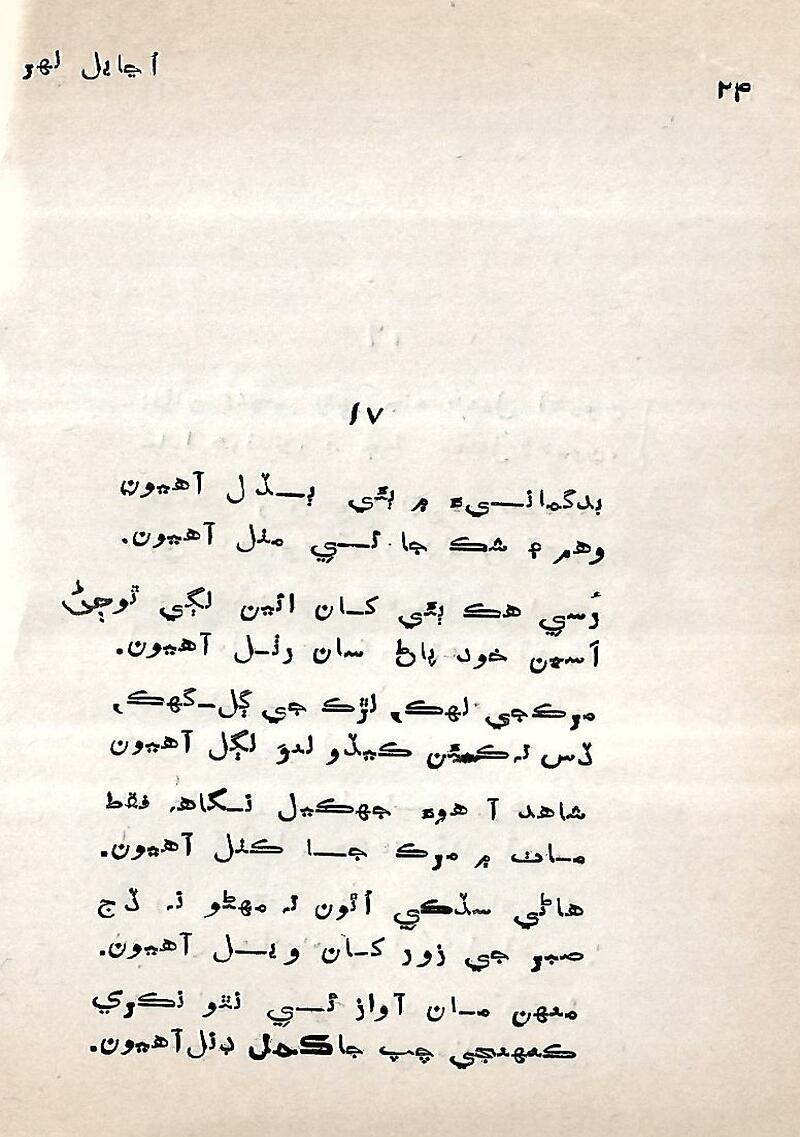 اڃايل لهر
۲۴
۱۷
بدگمانيءَ ۾ ٻئي ٻڏل آهيون
وهم ۽ شڪ جا ئي مئل آهيون.
رُسي هڪ ٻئي کان ائين لڳي ٿو ڄڻ
اَسين خود پاڻ سان رٺل آهيون.
مرڪ جي لهڪ، لڙڪ جي ڳل_گهڪ،
ڏس نه ڪيئن ڪيڏو لڳل آهيون
شاهد آ هوءَ جهڪيل نگاهه فقط
مات ۾ مرڪ جا کٽل آهيون.
هاڻي سڏڪي اُٿون نه مهڻو نه ڏج
صبر جي زور کان ويل آهيون.
منهن مان آواز ئي نٿو نڪري
ڪنهنجي چپ جا ڏنل آهيون.